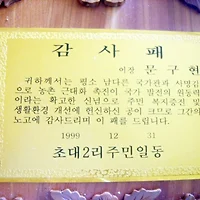 감 사 패
이장 문 구 현
귀하께서는 평소 남다른 국가관과 사명감
으로 농촌 근대화 촉진이 국가 발전의 원동력
이라는 확고한 신념으로 주민 복지증진 및
생활환경 개선에 헌신하신 공이 크므로 그간의
노고에 감사드리며 이 패를 드립니다.
1999 12 31
초대2리주민일동